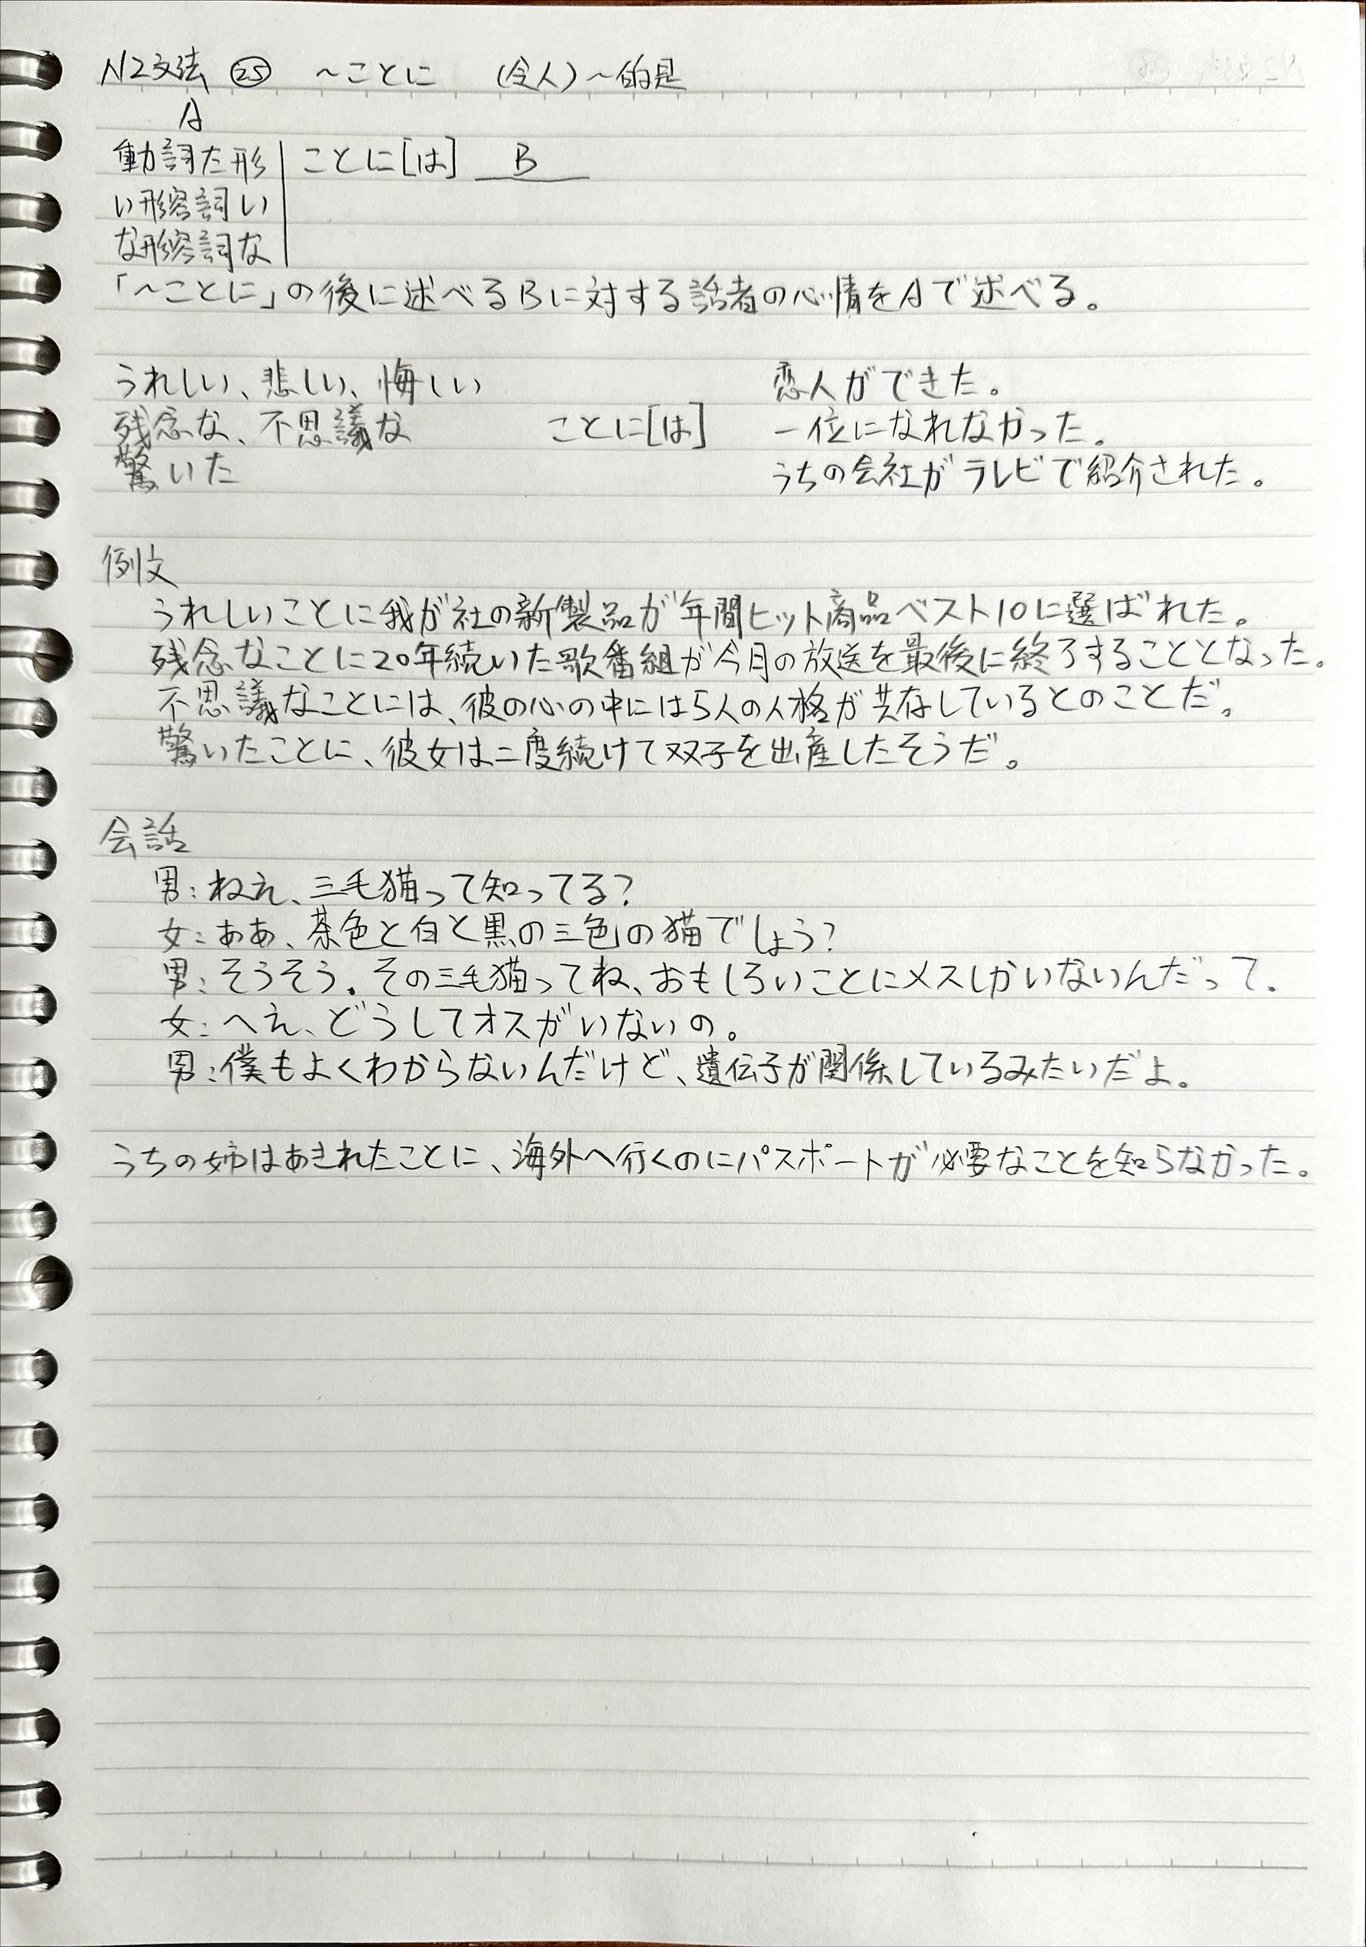 N2文法 ㉕ ～ことに (令人)～的是
A
動詞た形 ことに[は] B
い形容詞い
な形容詞な
「～ことに」の後に述べるBに対する話者の心情をAで述べる。
うれしい、悲しい、悔しい 恋人ができた。
残念な、不思議な ことに[は] 一位になれなかった。
驚いた うちの会社がテレビで紹介された。
例文
うれしいことに我が社の新製品が年間ヒット商品ベスト10に選ばれた。
残念なことに20年続いた歌番組が今月の放送を最後に終了することとなった。
不思議なことには、彼の心の中には5人の人格が共存しているとのことだ。
驚いたことに、彼女は二度続けて双子を出産したそうだ。
会話
男:ねえ、三毛猫って知ってる?
女:ああ、茶色と白と黒の三色の猫でしょう?
男:そうそう。その三毛猫ってね、おもしろいことにメスしかいないんだって。
女:へえ、どうしてオスがいないの。
男:僕もよくわからないんだけど、遺伝子が関係しているみたいだよ。
うちの姉はあきれたことに、海外へ行くのにパスポートが必要なことを知らなかった。